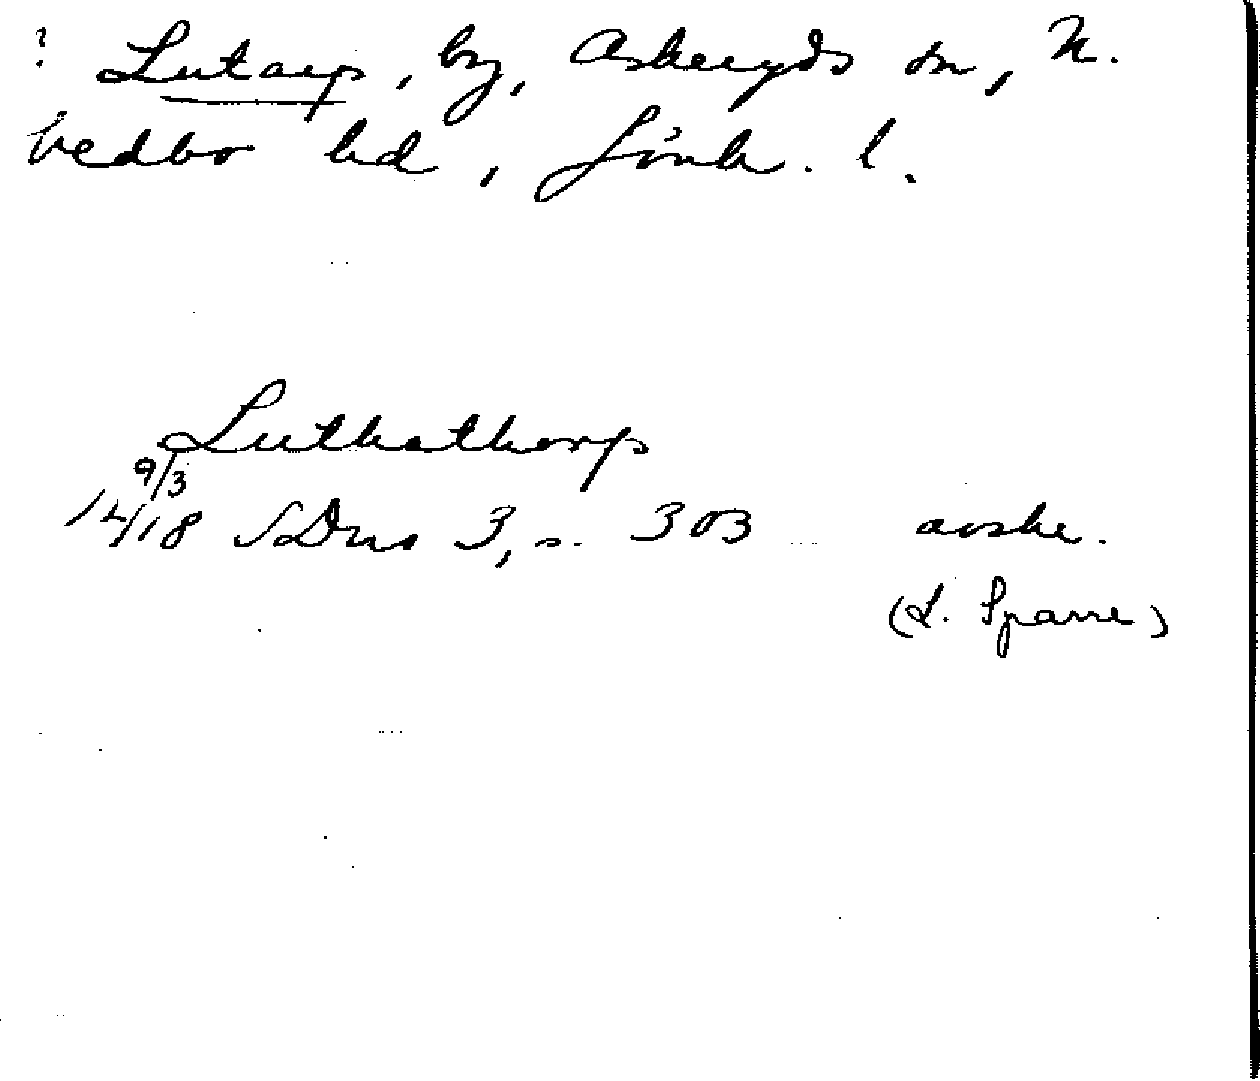 ? Lutarp, by, Askeryds sn, N.
Vedbo hd, Jönk. l.
Luthathorp
9/3
14/18 SDns 3, s. 303 avskr.
(L. Sparre)